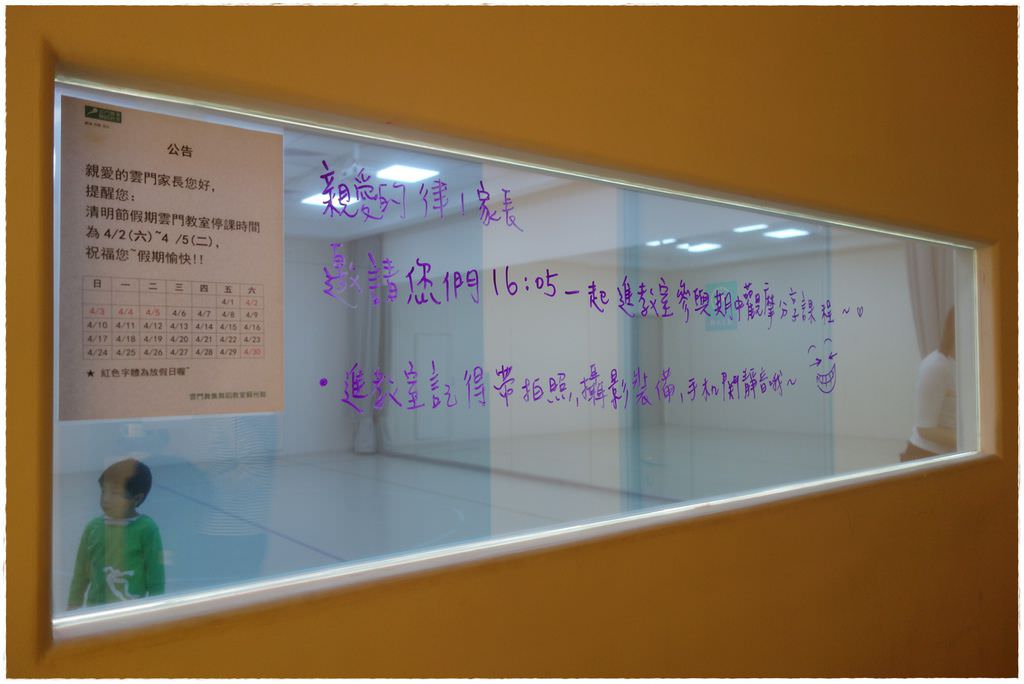 公告
親愛的雲門家長您好，
提醒您：
清明節假期雲門教室停課時間
為 4/2(六)~4 /5(二)，
祝福您~假期愉快!!
日 一 二 三 四 五 六
4/1 4/2
4/3 4/4 4/5 4/6 4/7 4/8 4/9
4/10 4/11 4/12 4/13 4/14 4/15 4/16
4/17 4/18 4/19 4/20 4/21 4/22 4/23
4/24 4/25 4/26 4/27 4/28 4/29 4/30
★ 紅色字體為放假日喔~
雲門舞集舞蹈教室
親愛的 律!家長
邀請您們16:05一起進教室參與期中觀摩分享課程~♡
• 進教室記得帶拍照,攝影裝備,手机開靜音哦~